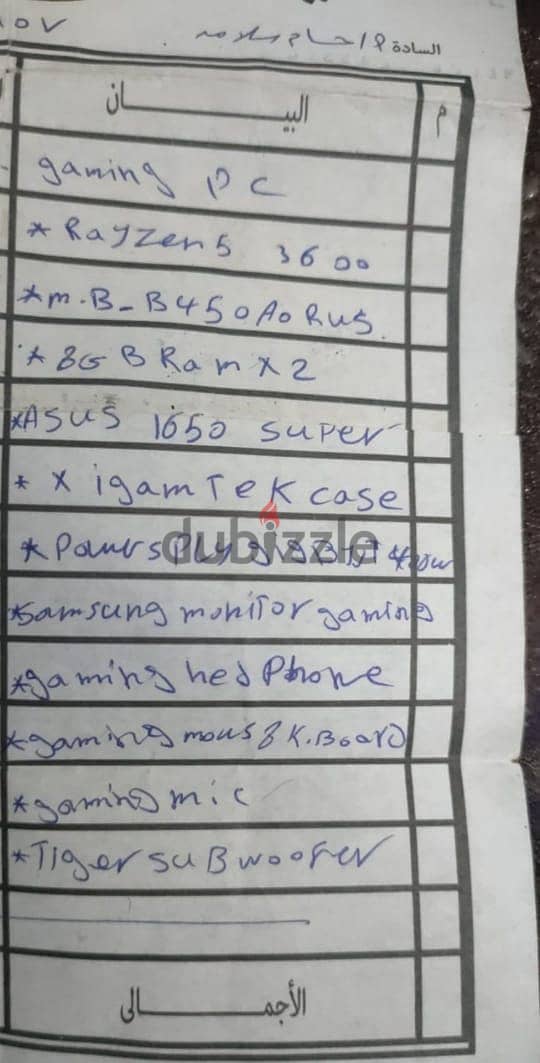 ٨٥٧
السادة / حسام سلامه
م البيـــــــان
gaming PC
* Rayzen 5 3600
* m.B_ B450 AoRus
* 8GB Ram X2
* ASUS 1650 super
* X igamTeK case
* 400w
* Samsung moniTor gaming
* gaming hedPhone
* gaming mous & K.Board
* gaming mic
* Tiger suBwoofer
الأجمـــــــالى
dubizzle